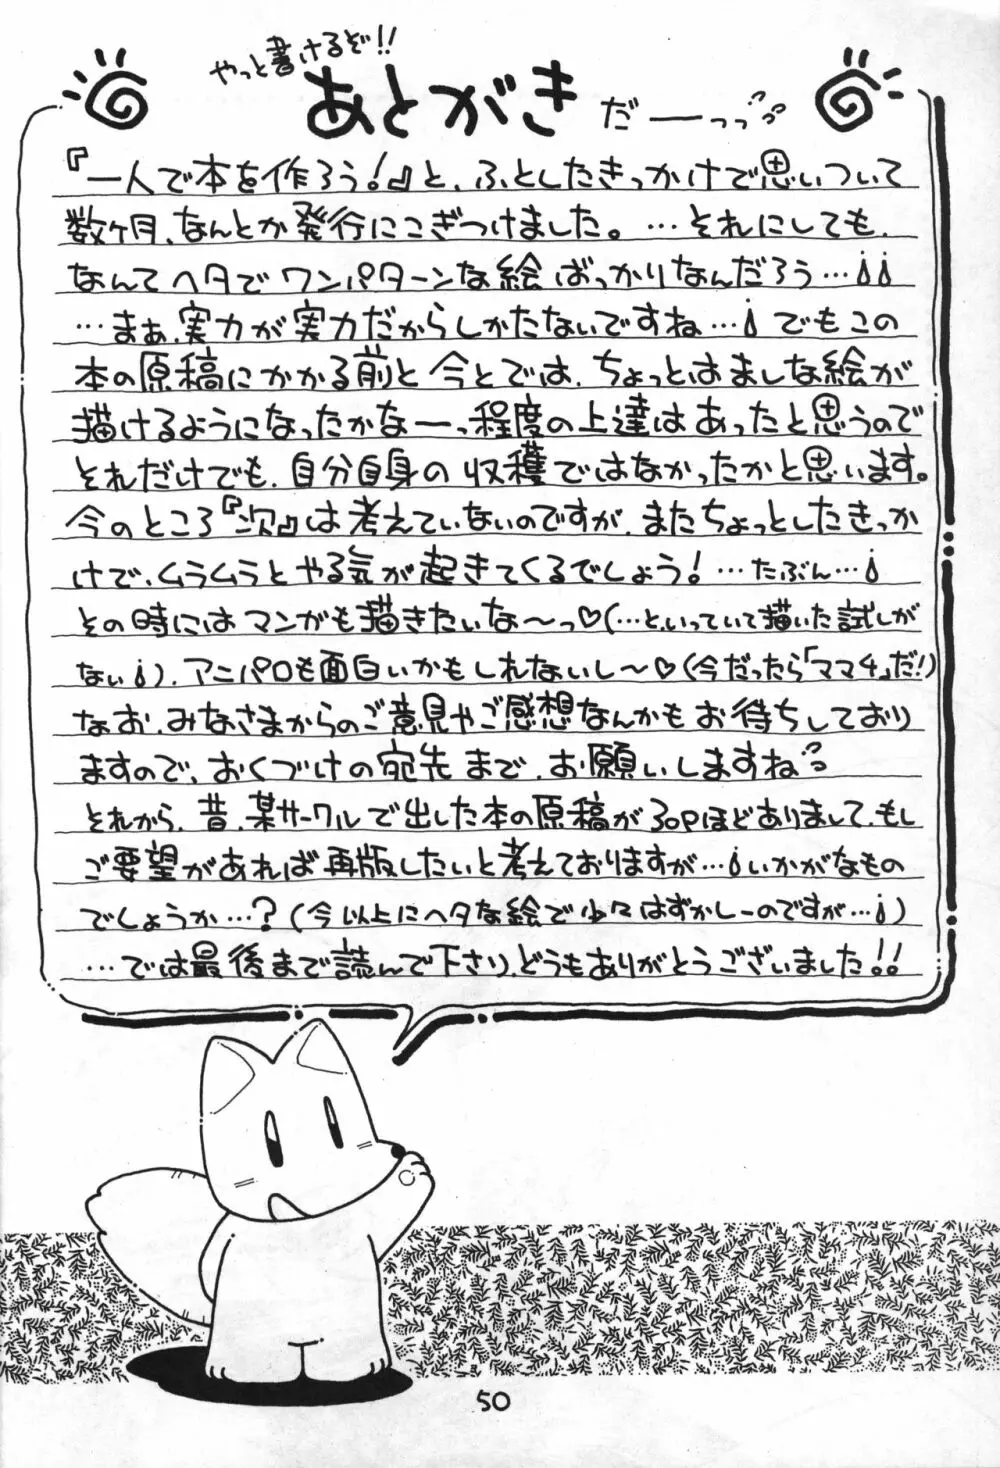 やっと書けるぞ!!
あとがきだーーっっ
『一人で本を作ろう!』と、ふとしたきっかけで思いついて
数ヶ月、なんとか発行にこぎつけました。…それにしても、
なんてヘタでワンパターンな絵ばっかりなんだろう…
…まぁ、実力が実力だからしかたないですね…でもこの
本の原稿にかかる前と今とでは、ちょっとはましな絵が
描けるようになったかなーっ程度の上達はあったと思うので
それだけでも、自分自身の収穫ではなかったかと思います。
今のところ『次』は考えていないのですが、またちょっとしたきっか
けで、ムラムラとやる気が起きてくるでしょう!…たぶん…
その時にはマンガも描きたいな〜っ♡(…と、いっていて描いた試しが
ない)、アニパロも面白いかもしれないし〜♡(今だったら「ママ4」だ!)
なお、みなさまからのご意見やご感想なんかもお待ちしており
ますので、おくづけの宛先まで、お願いしますね
それから、昔、某サークルで出した本の原稿が30pほどありまして、もし
ご要望があれば再版したいと考えておりますが…いかがなもの
でしょうか…?(今以上にヘタな絵で少々はずかしーのですが…)
…では最後まで読んで下さり、どうもありがとうございました!!
50